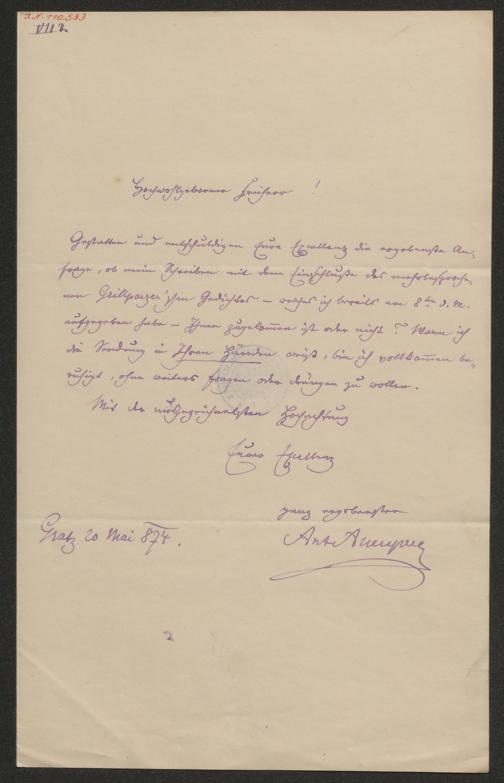 I.N. 110.583
VII 2
Hochwohlgeborner Freiherr !
Gestatten und entschuldigen Eure Excellenz die ergebenste An-
frage, ob mein Schreiben mit dem Einschluße des mehrbesproche-
nen Grillparzer'schen Gedichtes – welches ich bereits am 8ten d. M.
aufgegeben habe – Ihnen zugekommen ist oder nicht? Wenn ich
die Sendung in Ihren Händen weiß, bin ich vollkommen be-
ruhigt, ohne weiters fragen oder drängen zu wollen.
Mit der ausgezeichnetsten Hochachtung
Eurer Excellenz
ganz ergebenster
Ant Auersperg
Gratz 20 Mai 874.
2